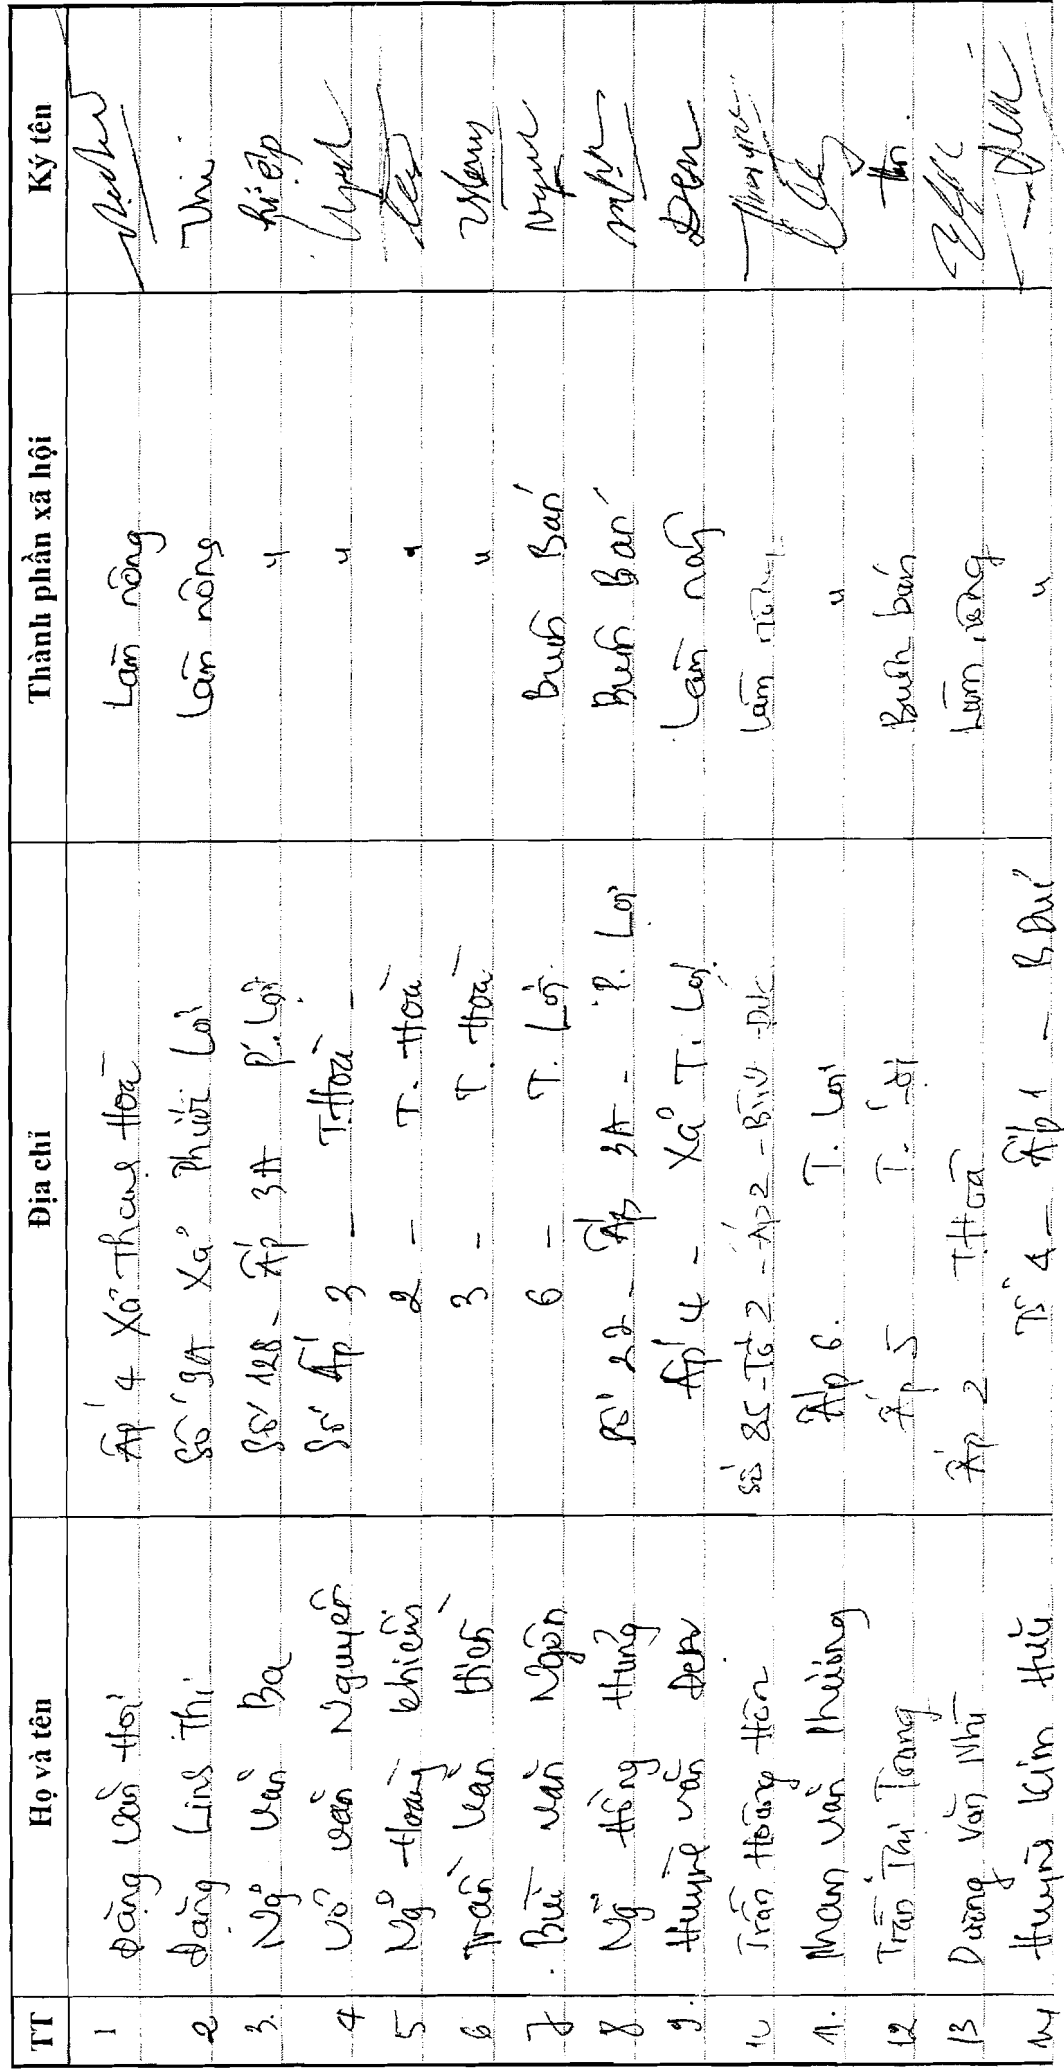 TT Họ và tên Địa chỉ Thành phần xã hội Ký tên
1 Đặng Văn Hơi Ấp 4 Xã Thạnh Hoà Làm nông
2 Đặng Linh Thi Số 9A Xã Phước Lợi Làm nông Thi
3. Ngô Văn Ba Số 128 - Ấp 3A P. Lợi " hiệp
4 Võ Văn Nguyên Số Ấp 3 - T. Hoà - "
5 Ngô Hoàng Khiêm 2 - T. Hoà "
6 Trần Văn Hiền 3 - T. Hoà "
7 Bùi Văn Ngôn 6 - T. Lợi. Buôn Bán
8 Ng Hồng Hưng Số 22 - Ấp 3A - P. Lợi Buôn Bán
9. Huỳnh Văn Đen Ấp 4 - Xã T. Lợi. Làm nông Đen
10 Trần Hoàng Hôn Số 85 - Tổ 2 - Ấp 2 - Làm nông
11. Phan Văn Phường Ấp 6. T. Lợi "
12 Trần Thị Trang Ấp 5 T. Lợi Buôn bán
13 Dương Văn Như Ấp 2 T Hoà Làm nông
14 Huỳnh Kim Hữu Tổ 4 - Ấp 1 - B. Đức "